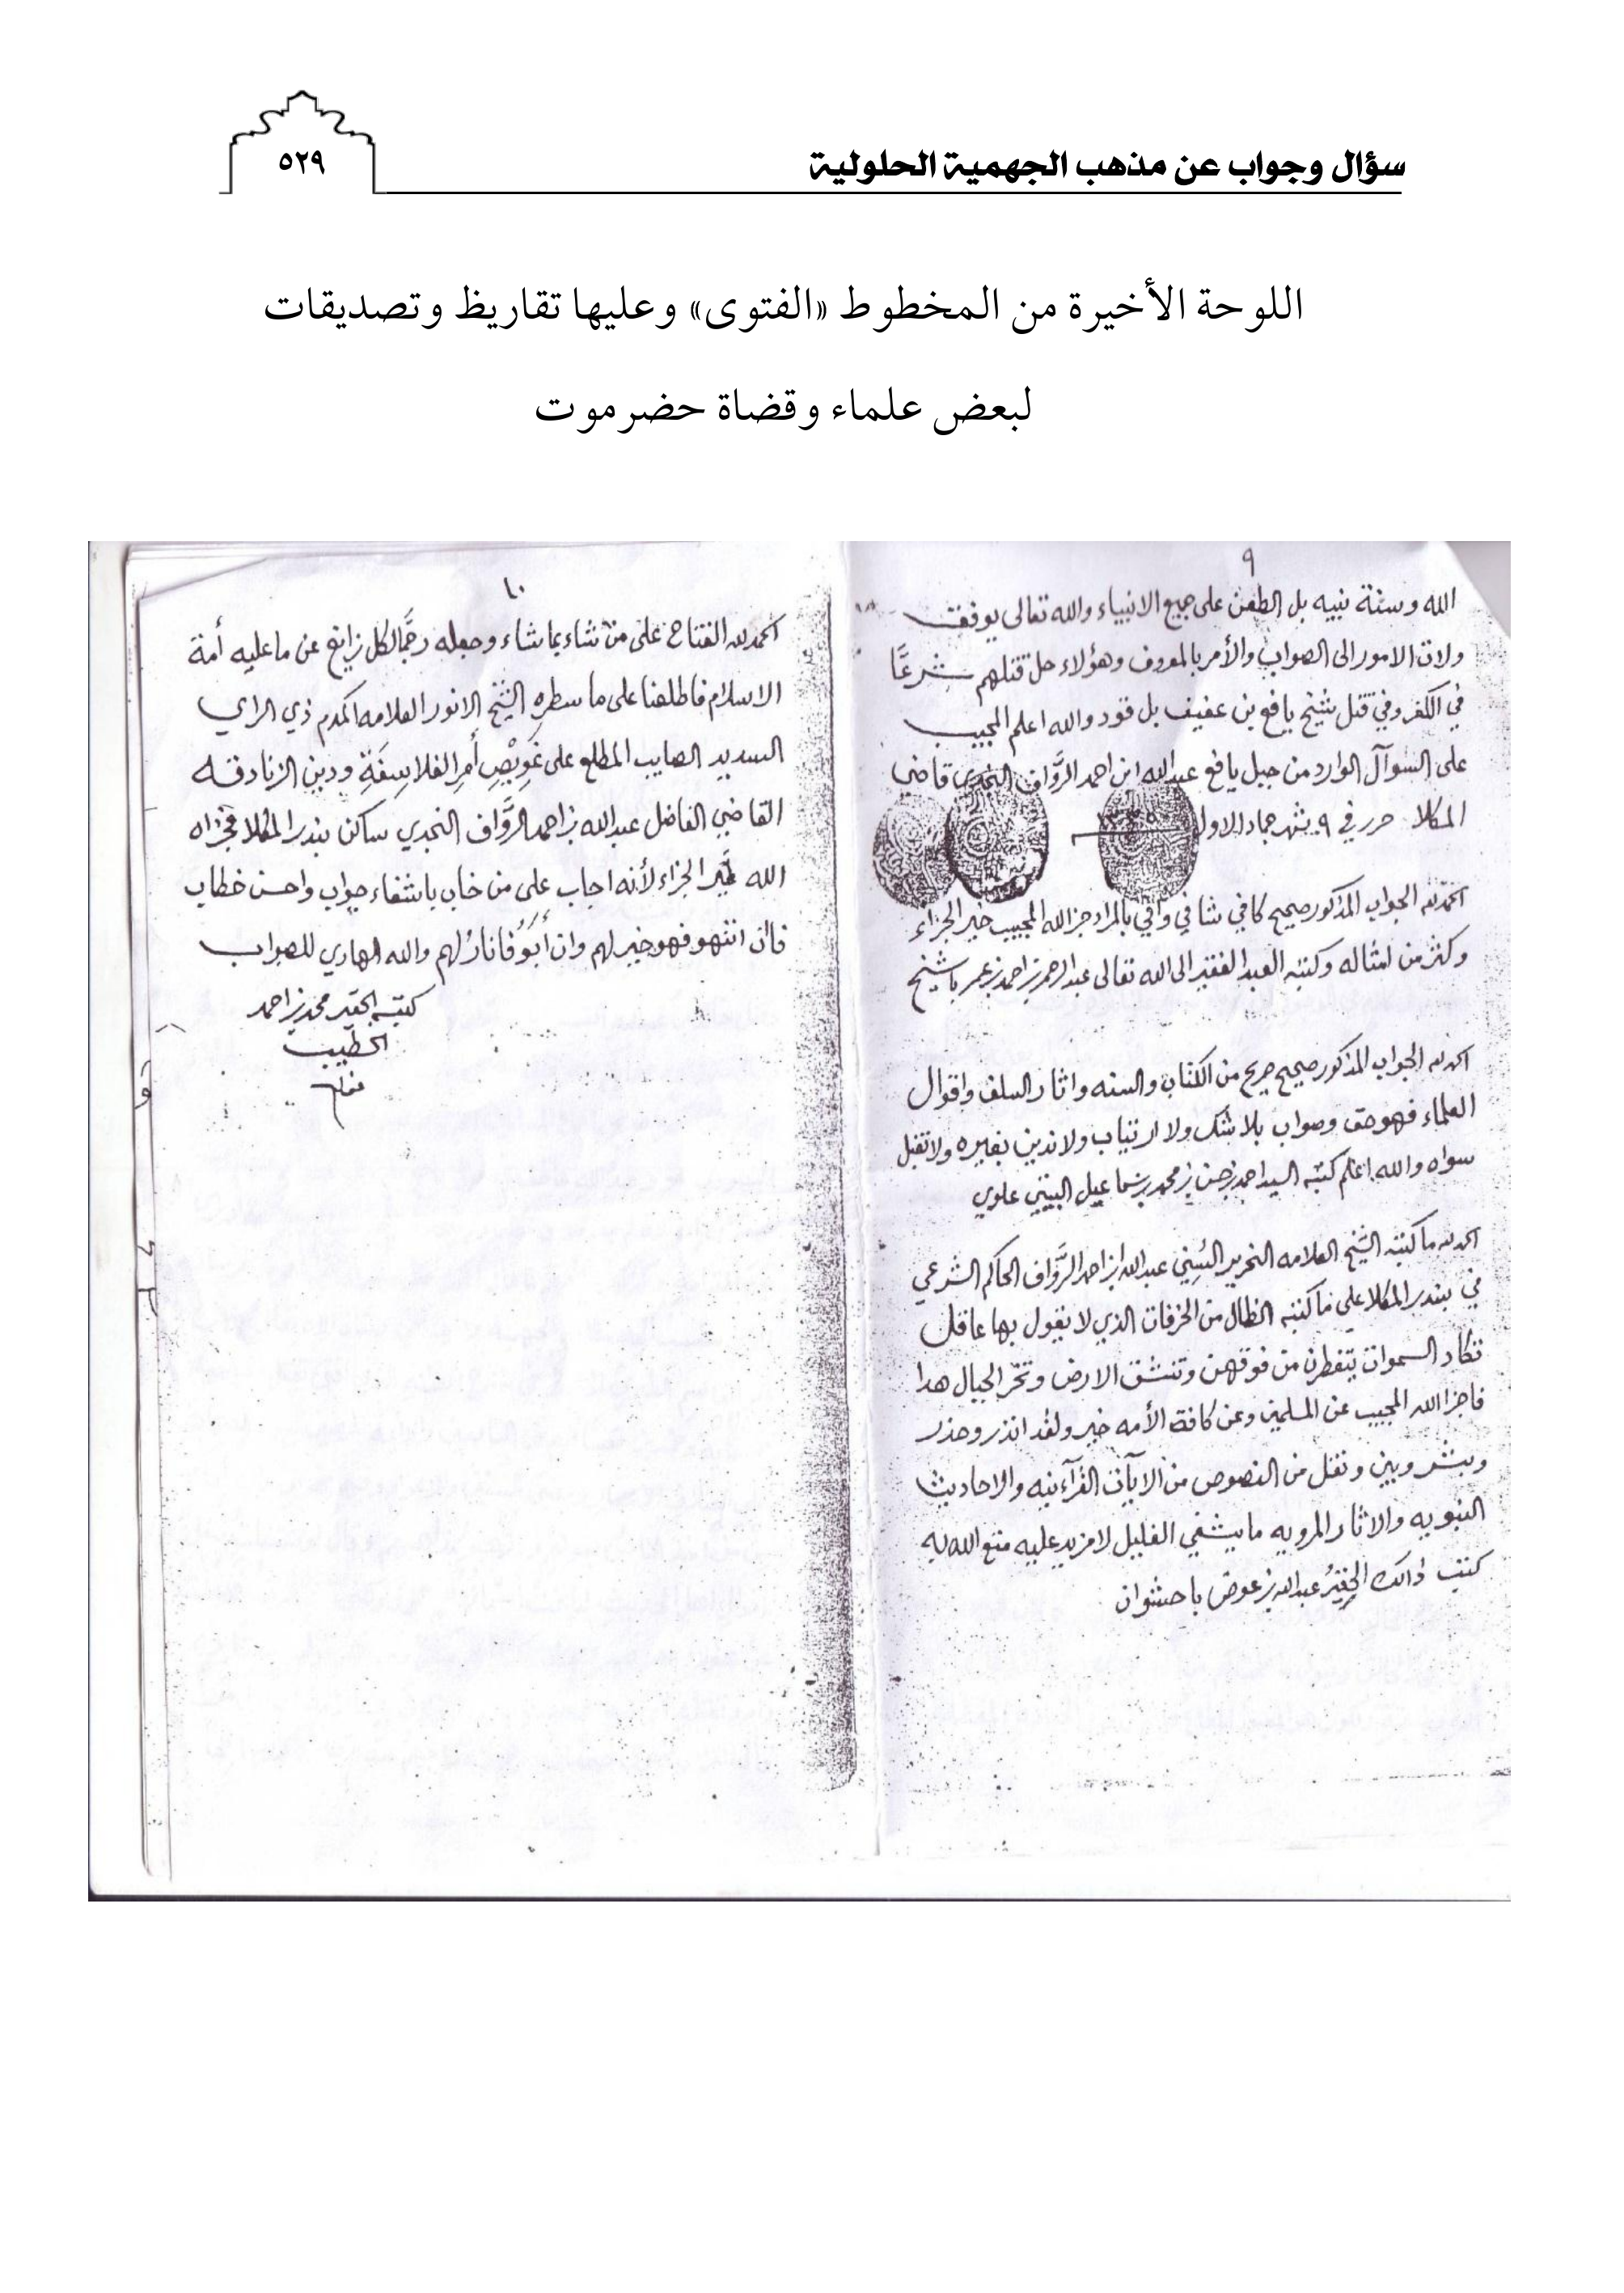 سؤال وجواب عن مذهب الجهمية الحلولية
٥٢٩
اللوحة الأخيرة من المخطوط «الفتوى» وعليها تقاريظ وتصديقات
لبعض علماء وقضاة حضرموت
٩
الله وسنة نبيه بل الطعن على جميع الانبياء والله تعالى يوفق
ولات الامور الى الصواب والأمر بالمعروف وهؤلاء حل قتلهم شرعًا
في الكفر وفي قتل شيخ يافع بن عفيف بل قود والله اعلم المجيب
على السوآل الوارد من جبل يافع عبدالله ابن احمد الروَّاف النجدي قاضي
المكلا حرر في ٩ شهر جماد الاول
الحمدلله الجواب المذكور صحيح كافي شافي وافي بالمراد جزا الله المجيب خير الجزاء
وكثر من امثاله وكتبه العبد الفقير الى الله تعالى عبدالرحمن بن احمد بن عمر باشيخ
الحمدلله الجواب المذكور صحيح صريح من الكتاب والسنه واثار السلف واقوال
العلماء فهو حق وصواب بلا شك ولا ارتياب ولا ندين بغيره ولا تقبل
سواه والله اعلم كتبه السيد احمد بن حسن بن محمد بن سماعيل البيتي علوي
الحمدلله ما كتبه الشيخ العلامه النحرير السُّنِي عبدالله ابن احمد الرَّواف الحاكم الشرعي
في بندر المكلا على ما كتبه الظال من الخرفات الذي لا يقول بها عاقل
تكاد السموات يتفطرن من فوقهن وتنشق الارض وتخر الجبال هدا
فاجزا الله المجيب عن المسلمين وعن كافة الأمه خير ولقد انذر وحذر
وبشر وبين ونقل من النصوص من الايآت القرآنيه والاحاديث
النبويه والاثار المرويه ما يشفي الغليل لا مزيد عليه متع الله به
كتب ذالك الحقير عبدالله بن عوض باحشوان
١٠
الحمدلله الفتاح على من شاء بما شاء وجعله رجمًا لكل زايغ عن ما عليه أمة
الاسلام فاطلعنا على ما سطره الشيخ الانور العلامه المكرم ذي الراي
السديد الصايب المطلع على غَوِيْصِ أمرِ الفلاسِفَةِ ودين الزنادقه
القاضي الفاضل عبدالله بن احمد الروَّاف النجدي ساكن بندر المكلا فجزاه
الله خير الجزاء لأنه اجاب على من خاب باشفاء جواب واحسن خطاب
فان انتهو فهو خير لهم وان أبَوْ فا نار لهم والله الهادي للصواب
كتبه الحقير محمد بن احمد
الخطيب